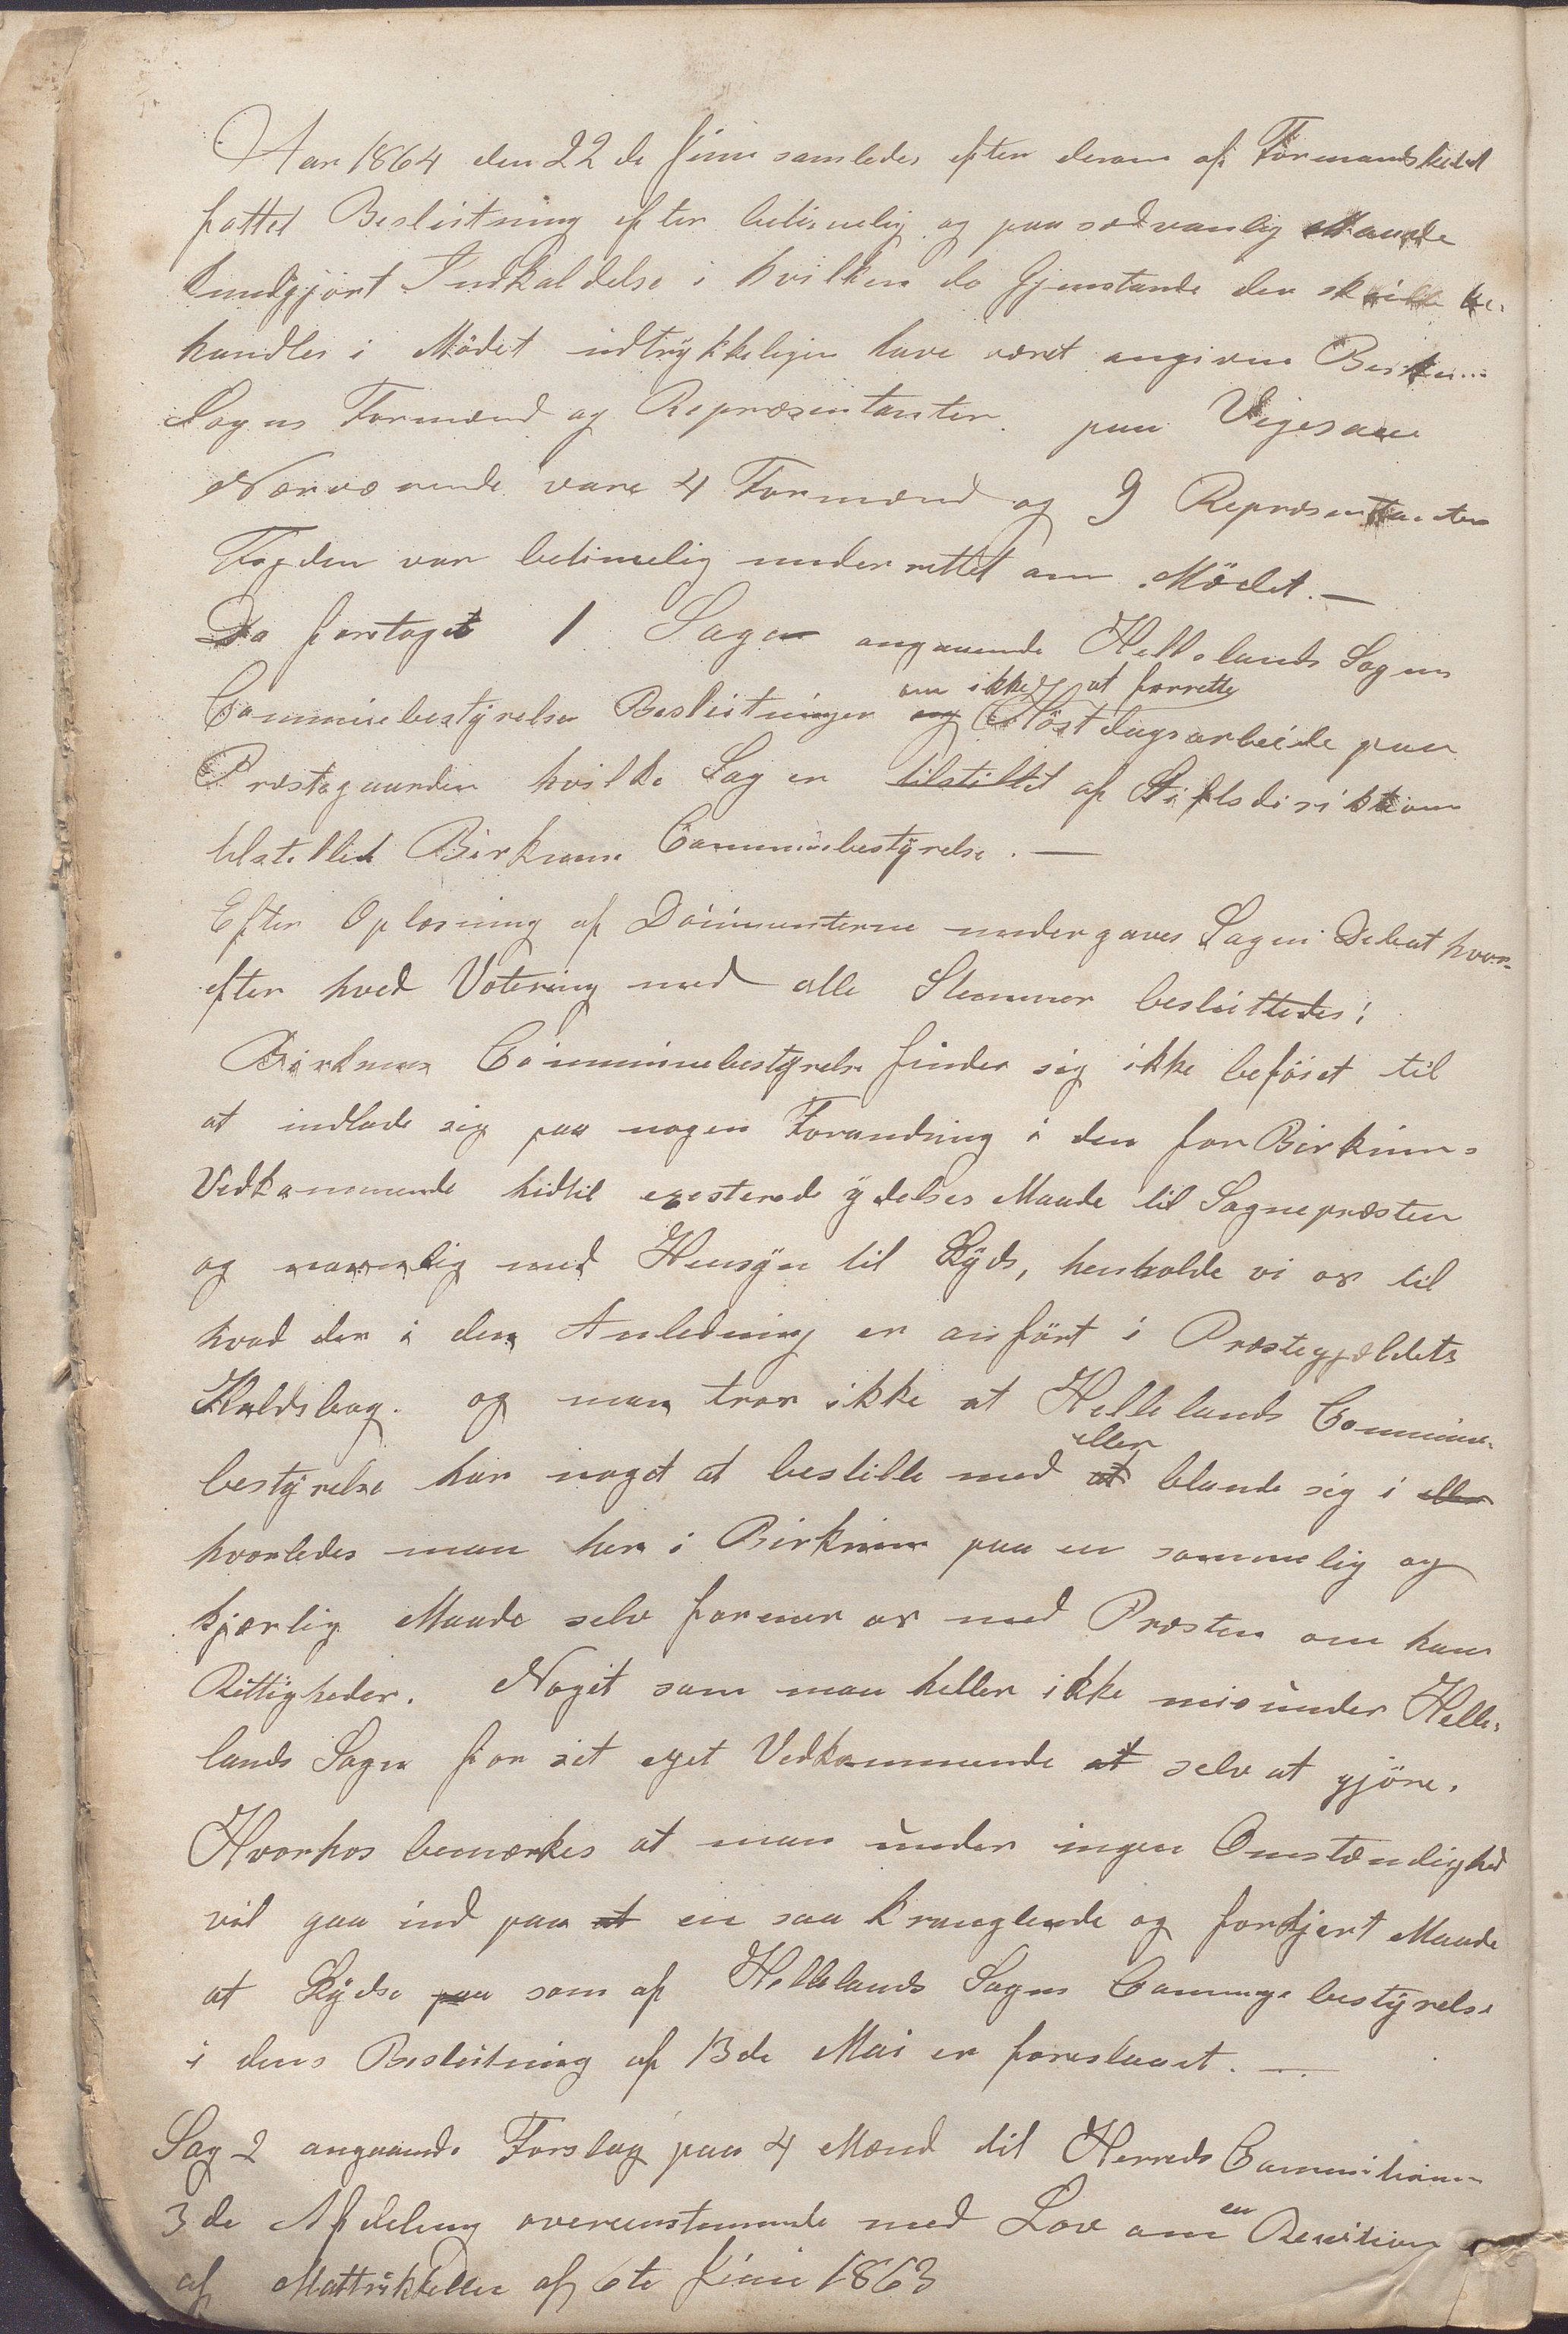 Aar 1864 den 22de Juni samledes efter derom af Formandskabet
fattet Beslutning efter betimelig og paa sædvanlig Maade
kundgjort Indkaldelse i hvilken de Gjenstande der skulde be-
handles i Mödet udtrykkeligen have været angivne Birk
Sogns Formænd og Repræsentanter. paa Vigesaae
Nærværende vare 4 Formænd og 9 Repræsentanter
Fogden var betimelig underrettet om Mödet.—
Da foretoget 1 Sag angaaende Hellelands Sogns
Communebestyrelse Beslutninger om ikke at forrette Höstdagsarbeide paa
Præstegaarden hvilke Sag er tilstillet af Stiftsdiriktion
tilstillet Birkrem Communebestyrelse.—
Efter Oplæsning af Documenterne undergaves Sagen Debat hvor-
efter hved Votering med alle Stemmer besluttedes:
Birkrem Communebestyrelse finder sig ikke beföiet til
at indlade sig paa nogen Forandring i den for Birkrims
Vedkommende hidtil existerede ydelses Maade til Sognepræsten
og navnlig med Hensyn til Skyds, henholde vi os til
hvad der i den Anledning er anfört i Præstegjældets
Kaldsbog. og man tror ikke at Hellelands Commune-
bestyrelse har noget at bestille med eller at blande sig i eller
hvorledes man her i Birkrim paa en sømmelig og
kjærlig Maade selv forener os med Præsten om hans
Rettigheder. Noget som man heller ikke misunder Helle-
lands Sogn for sit eget Vedkommende at selv at gjöre.
Hvorhos bemærkes at man under ingen Omstændighed
vil gaa ind paa at en saa kranglende og forkjert Maade
at Skydse paa som af Hellelands Sogns Commune bestyrelse
i dens Beslutning af 13de Mai er foreslaaet.—
Sag 2 angaaende Forslag paa 4 Mænd til Herreds Commission
3de Afdeling overensstemmende med Lov om en Revision
af Mattrikkellen af 6te Juni 1863